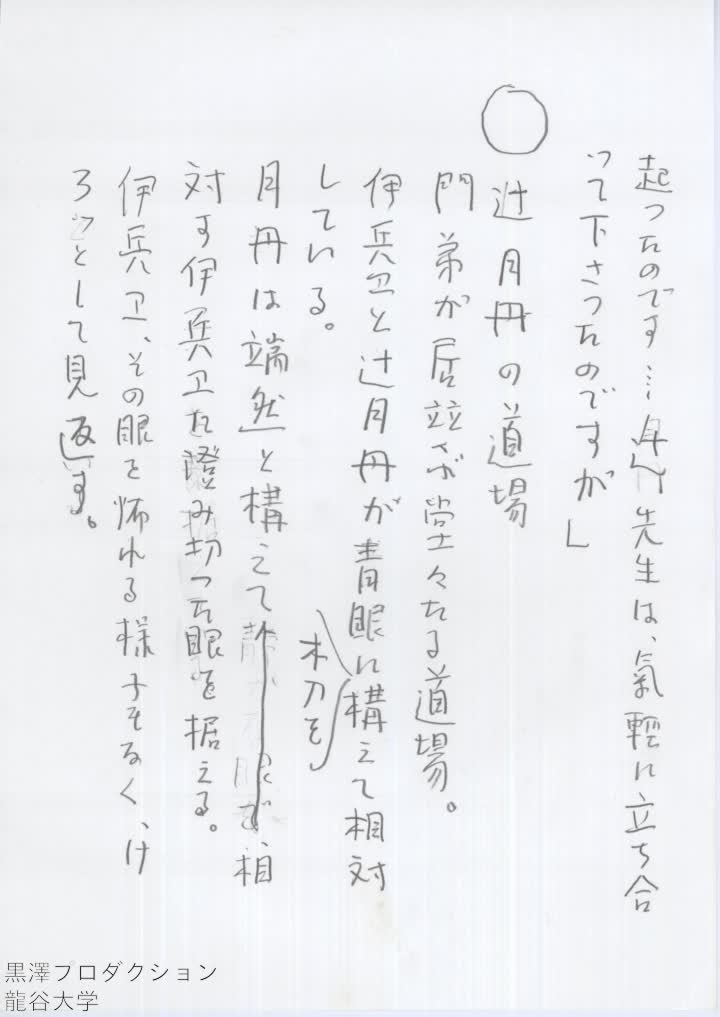 起ったのです…先生は、氣輕に立ち合
って下さったのですが」
○
辻月丹の道場
門弟が居並ぶ堂々たる道場。
伊兵卫と辻月丹が青眼に木刀を構えて相対
している。
月丹は端然と構えて、相
対す伊兵卫た澄み切った眼を据える。
伊兵卫、その眼を怖れる様子もなく、け
ろッとして見返す。
黒澤プロダクション
龍谷大学